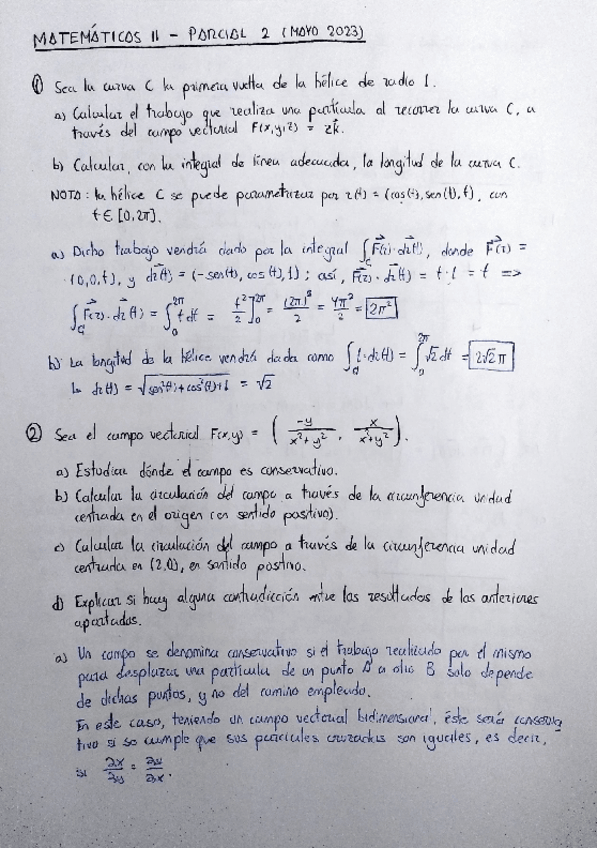 MATEMÁTICAS II - PARCIAL 2 (MAYO 2023)
① Sea la curva C la primera vuelta de la hélice de radio 1.
a) Calcular el trabajo que realiza una partícula al recorrer la curva C, a
través del campo vectorial F(x,y,z) = zk.
b) Calcular, con la integral de línea adecuada, la longitud de la curva C.
NOTA: la hélice C se puede parametrizar por r(t) = (cos(t), sen(t), t), con
t ∈ [0, 2π].
a) Dicho trabajo vendrá dado por la integral ∫_C F(r)·dr(t), donde F(r) =
(0,0,t), y dr(t) = (-sen(t), cos(t), 1); así, F(r)·dr(t) = t·1 = t =>
∫_C F(r)·dr(t) = ∫_0^{2π} t dt = t²/2 ]_0^{2π} = (2π)²/2 = 4π²/2 = 2π²
b) La longitud de la hélice vendrá dada como ∫_C 1·dr(t) = ∫_0^{2π} √2 dt = 2√2 π
dr(t) = √(sen²(t)+cos²(t)+1) = √2
② Sea el campo vectorial F(x,y) = ( -y/(x²+y²), x/(x²+y²) ).
a) Estudiar dónde el campo es conservativo.
b) Calcular la circulación del campo a través de la circunferencia unidad
centrada en el origen (en sentido positivo).
c) Calcular la circulación del campo a través de la circunferencia unidad
centrada en (2,0), en sentido positivo.
d) Explicar si hay alguna contradicción entre los resultados de los anteriores
apartados.
a) Un campo se denomina conservativo si el trabajo realizado por el mismo
para desplazar una partícula de un punto A a otro B solo depende
de dichos puntos, y no del camino empleado.
En este caso, teniendo un campo vectorial bidimensional, éste será conserva
tivo si se cumple que sus parciales cruzadas son iguales, es decir,
si ∂x/∂y = ∂y/∂x.